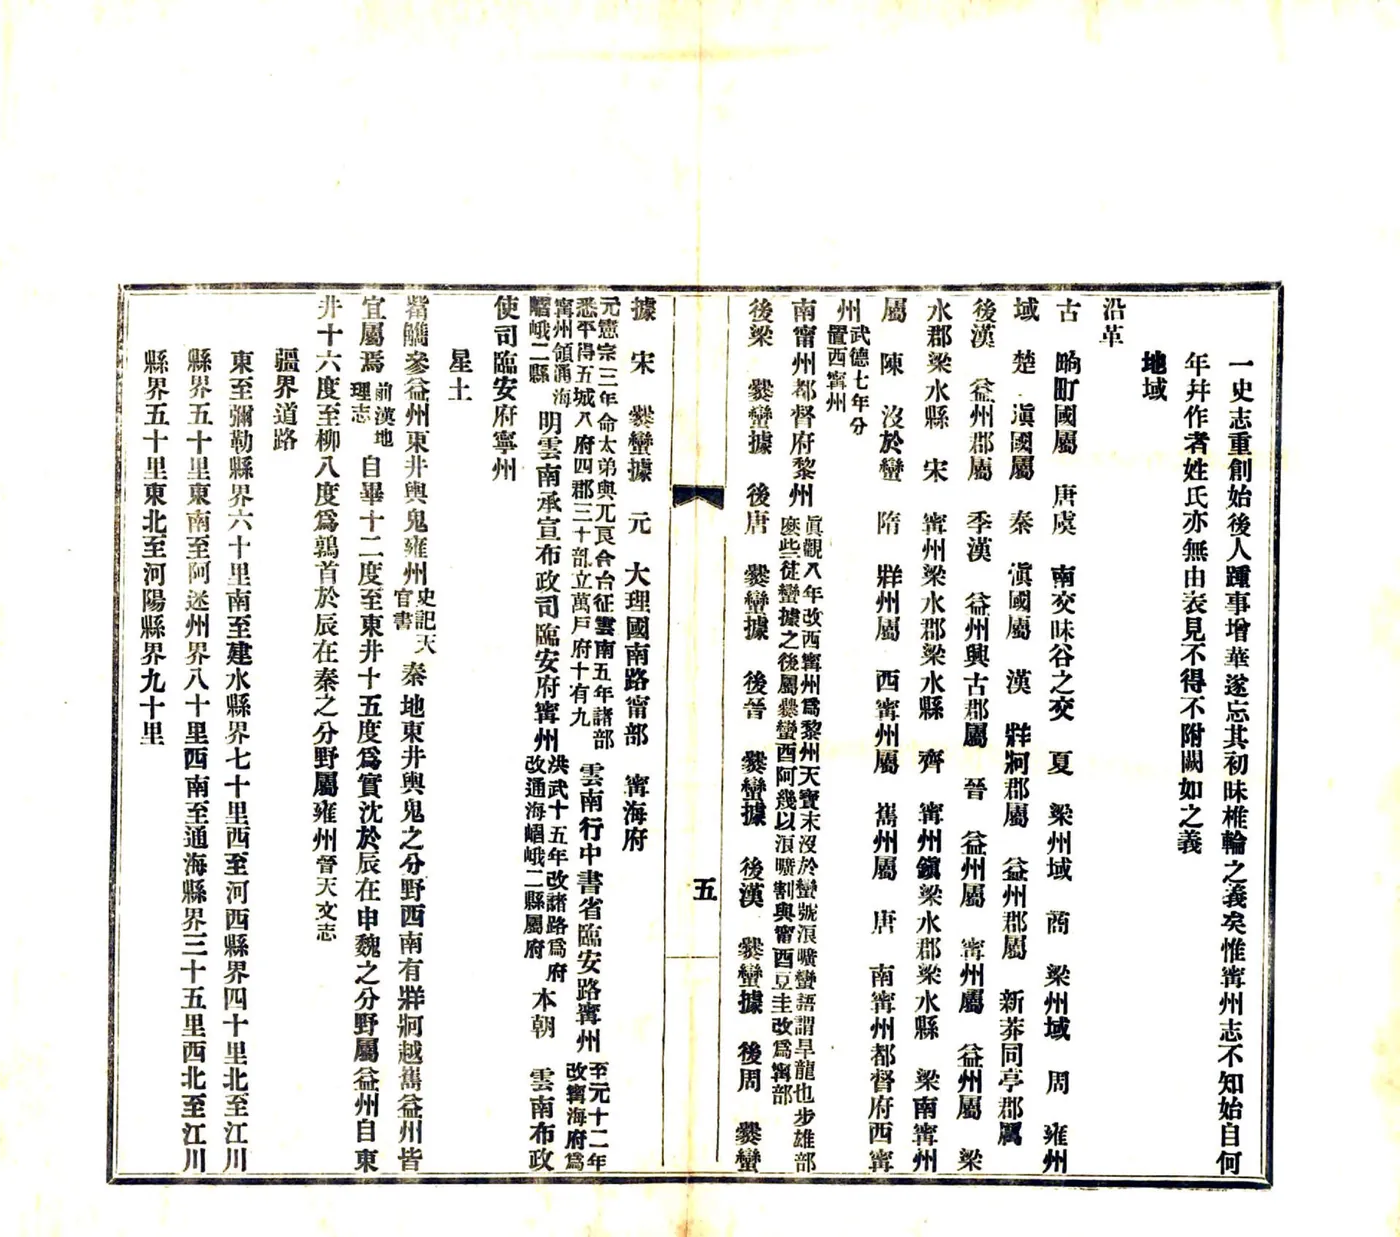 一史志重創始後人踵事增華遂忘其初昧椎輪之義矣惟甯州志不知始自何
年幷作者姓氏亦無由表見不得不附闕如之義
地域
沿革
古　眗町國屬　唐虞　南交昧谷之交　夏　梁州域　商　梁州域　周　雍州
域　楚　滇國屬　秦　滇國屬　漢　牂牁郡屬　益州郡屬　新莽同亭郡屬
後漢　益州郡屬　季漢　益州興古郡屬　晉　益州屬　甯州屬　益州屬　梁
水郡梁水縣　宋　甯州梁水郡梁水縣　齊　甯州鎮梁水郡梁水縣　梁南甯州
屬　陳　沒於蠻　隋　牂州屬　西甯州屬　嶲州屬　唐　南甯州都督府西甯
州武德七年分置西甯州
南甯州都督府黎州眞觀八年改西甯州爲黎州天寶末沒於蠻號浪曠蠻語謂旱龍也步雄部麽些徒蠻據之後屬爨蠻酋阿幾以浪曠割與甯酋豆圭改爲甯部
後梁　爨蠻據　後唐　爨蠻據　後晉　爨蠻據　後漢　爨蠻據　後周　爨蠻
據　宋　爨蠻據　元　大理國南路甯部　甯海府
元憲宗三年命太弟與兀良合台征雲南五年諸部悉平得五城八府四郡三十部立萬戶府十有九　雲南行中書省臨安路甯州至元十二年改甯海府爲
甯州領通海嶍峨二縣　明雲南承宣布政司臨安府甯州洪武十五年改諸路爲府改通海嶍峨二縣屬府　本朝　雲南布政
使司臨安府寧州
星土
觜觿參益州東井輿鬼雍州史記天官書　秦地東井輿鬼之分野西南有牂牁越嶲益州皆
宜屬焉前漢地理志　自畢十二度至東井十五度爲實沈於辰在申魏之分野屬益州自東
井十六度至柳八度爲鶉首於辰在秦之分野屬雍州晉天文志
疆界道路
東至彌勒縣界六十里南至建水縣界七十里西至河西縣界四十里北至江川
縣界五十里東南至阿迷州界八十里西南至通海縣界三十五里西北至江川
縣界五十里東北至河陽縣界九十里
五